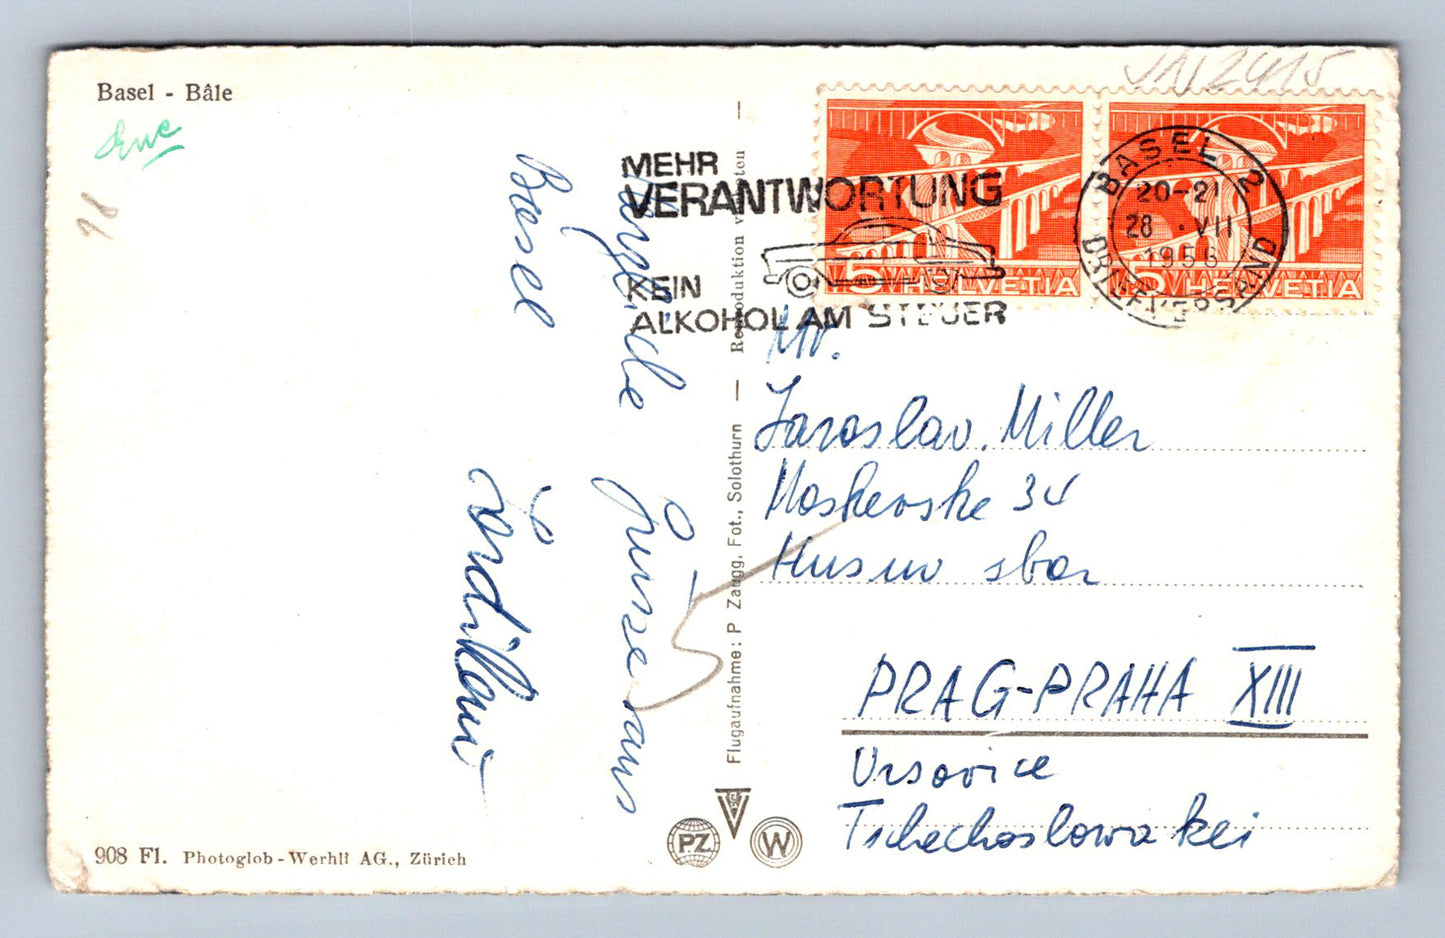 Basel - Bâle
MEHR
VERANTWORTUNG
KEIN
ALKOHOL AM STEUER
5 HELVETIA
5 HELVETIA
BASEL 2
20-21
28 · VII
1956
BRIEFVERSAND
Herzliche Grüsse aus
Basel
Mr.
Jaroslav Miller
Moskevske 34
Husuv sbor
PRAG-PRAHA XIII
Vrsovice
Tschechoslowakei
Flugaufnahme: P. Zaugg, Fot., Solothurn — Reproduktion
PZ
W
908 Fl. Photoglob-Wehrli AG., Zürich